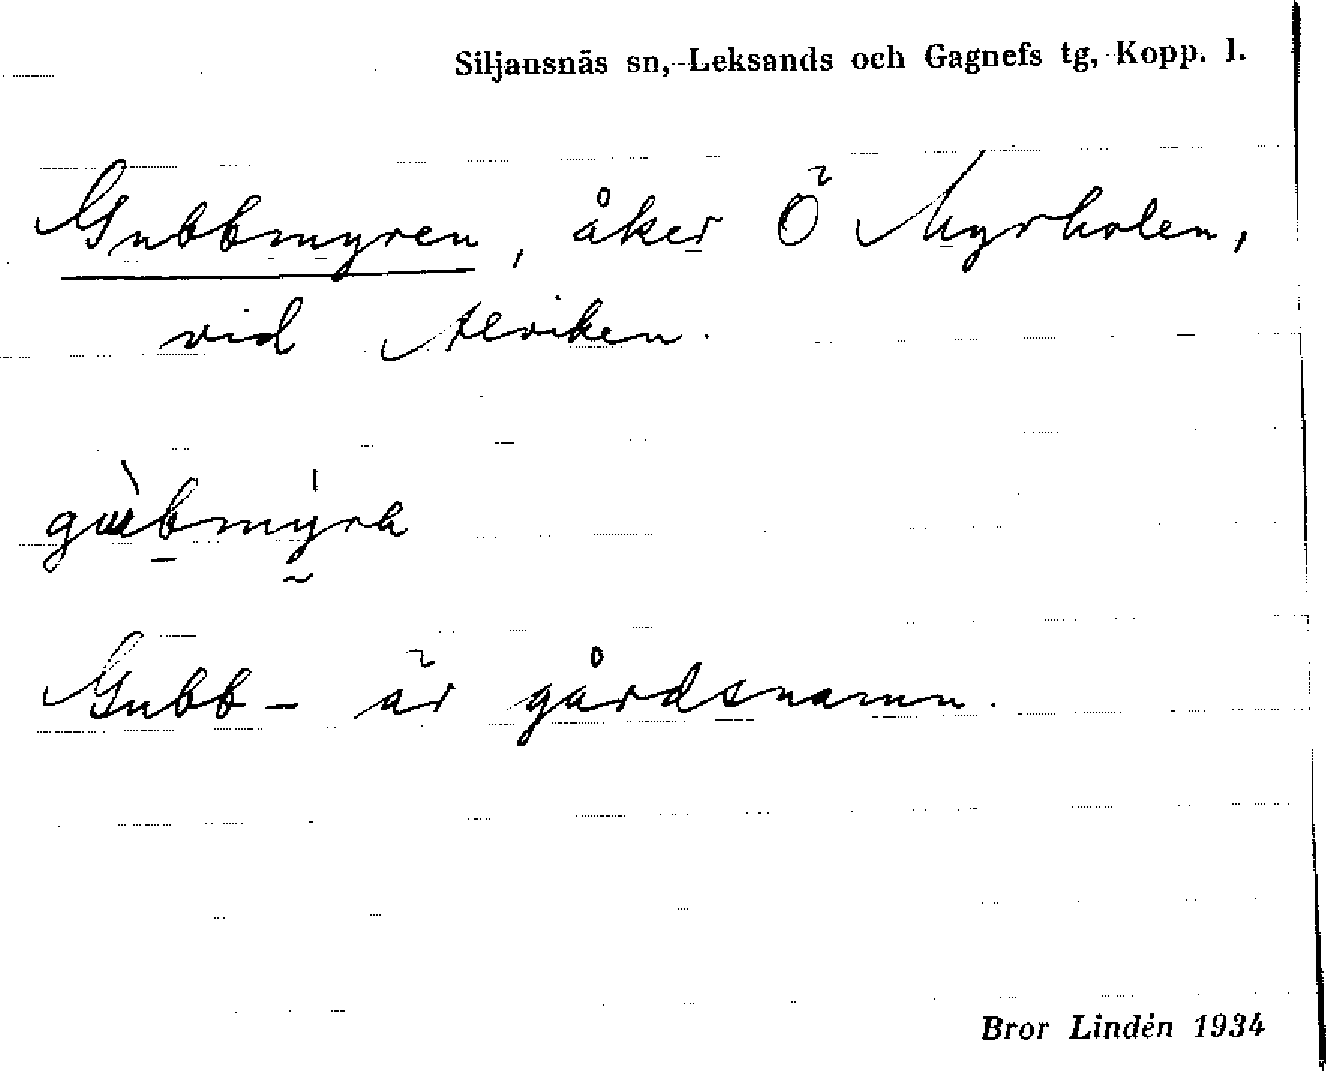 Siljansnäs sn, Leksands och Gagnefs tg, Kopp. l.
Gubbmyren, åker Ö Myrholen,
vid Alviken.
gùbmýra
Gubb- är gårdsnamn.
Bror Lindén 1934